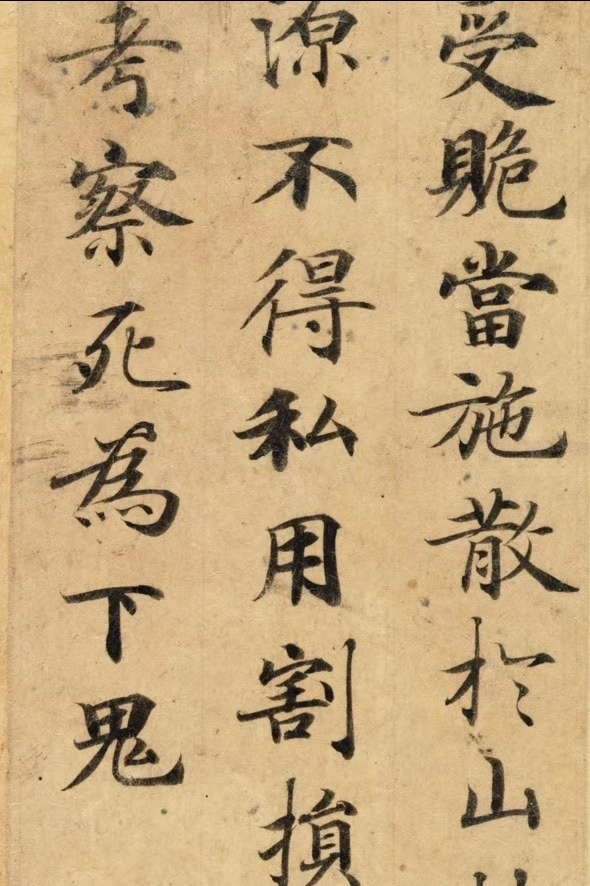 受䞈當施散於山
源不得私用割損
考察死為下鬼